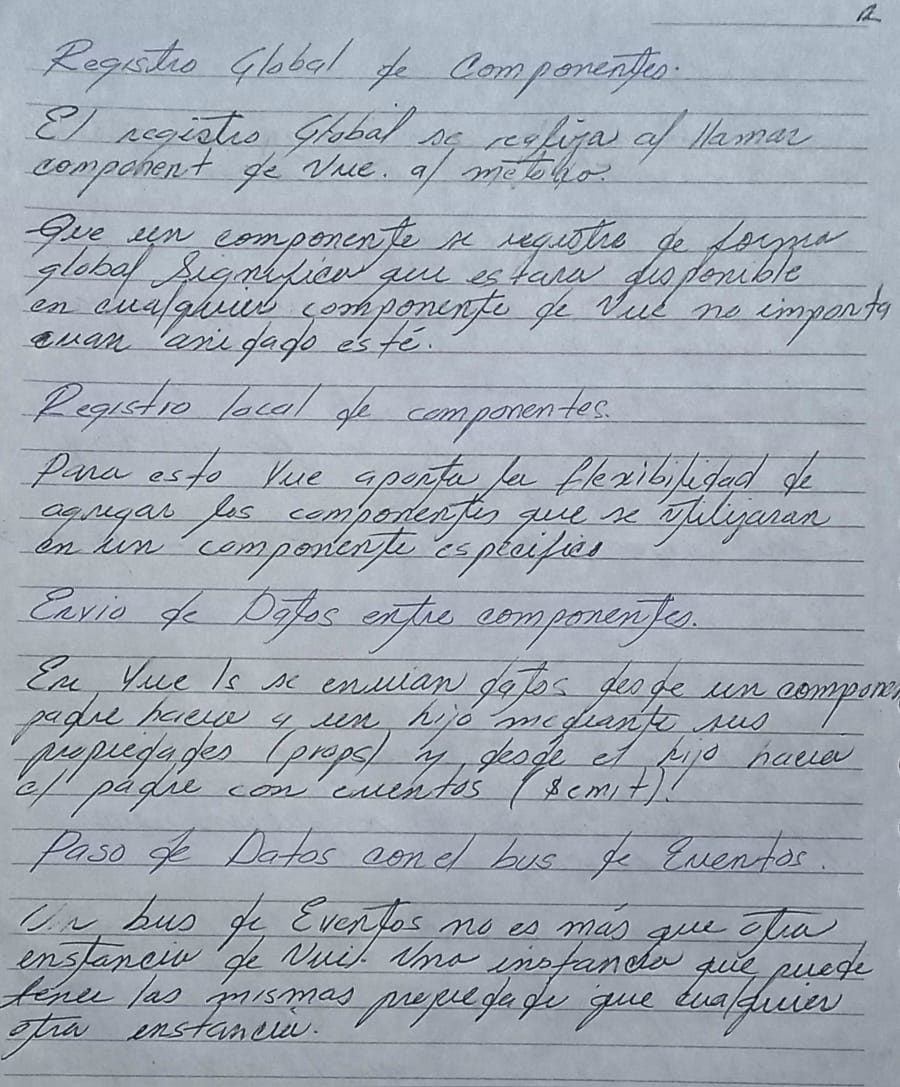 2
Registro Global de Componentes.
El registro Global se realiza al llamar
component de Vue. al método.
Que un componente se registre de forma
global Significa que estara disponible
en cualquier componente de Vue no importa
cuan anidado esté.
Registro local de componentes.
Para esto Vue aporta la flexibilidad de
agregar los componentes que se utilizaran
en un componente especifico
Envio de Datos entre componentes.
En Vue Js se envian datos desde un componen
padre hacia a un hijo mediante sus
propiedades (props) y desde el hijo hacia
el padre con eventos ($emit).
Paso de Datos con el bus de Eventos.
Un bus de Eventos no es más que otra
enstancia de Vue. Una instancia que puede
tener las mismas propiedade que cualquier
otra enstancia.